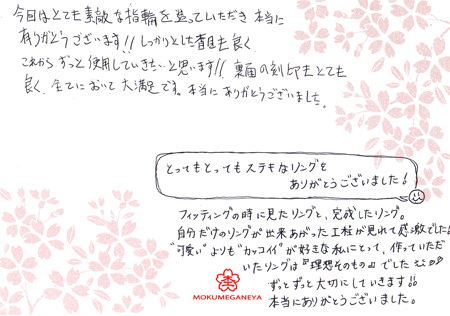 今回はとても素敵な指輪を造っていただき本当に
ありがとうございます!! しっかりとした着目も良く
これからずっと使用していきたいと思います!! 裏面の刻印もとても
良く、全てにおいて大満足です。本当にありがとうございました。
とってもとってもステキなリングを
ありがとうございました!
フィッティングの時に見たリングと、完成したリング。
自分だけのリングが出来あがった工程が見れて感激でした!
"可愛い"よりも"カッコイイ"が好きな私にとって、作っていただ
いたリングは『理想そのもの』でした
ずっとずっと大切にしていきます!!
本当にありがとうございました。
MOKUMEGANEYA